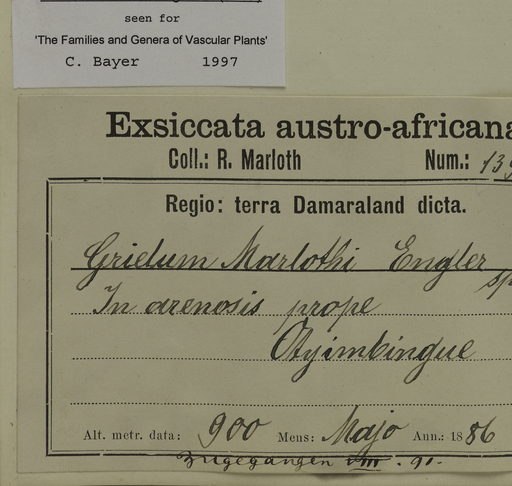 seen for
'The Families and Genera of Vascular Plants'
C. Bayer 1997
Exsiccata austro-africana
Coll.: R. Marloth Num.: 139
Regio: terra Damaraland dicta.
Grielum Marlothi Engler
sp
In arenosis prope
Otyimbingue
Alt. metr. data: 900 Mens: Majo Ann.: 1886
Zugegangen VIII. 91.